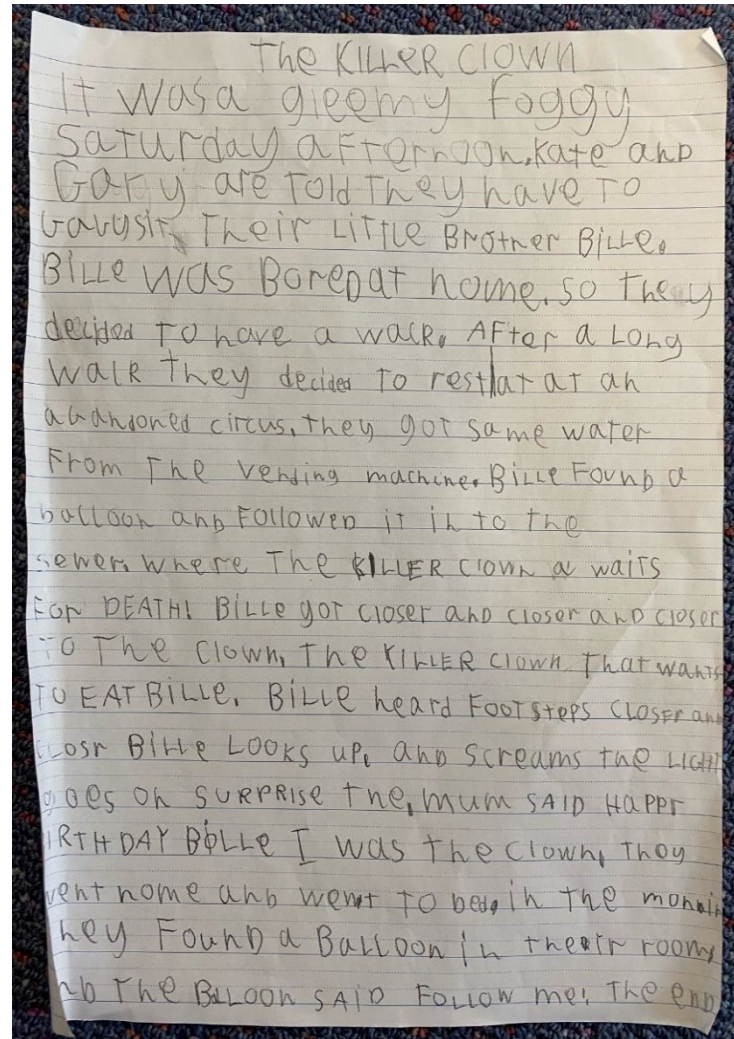 The KILLER CLOWN
It was a gleemy foggy
Saturday afternoon. Kate and
Gary are told they have to
babysit their little Brother Bille.
Bille was Bored at home, so they
decided to have a walk. After a long
walk they decided to rest at at an
abandoned circus. they got some water
From The vending machine. Bille Found a
balloon and Followed it in to the
sewer. Where The KILLER clown a waits
For DEATH! Bille got closer and closer and closer
TO The clown, The KILLER clown That wants
TO EAT BILLE. BILLE heard Footsteps closer an
closr Bille Looks up. and screams the light
goes on SURPRISE the, mum SAID HAPPY
IRTHDAY BILLE I was the clown, They
went home and went To bed, in The mornin
hey Found a Balloon in their room
nd The Balloon SAID Follow me! The end